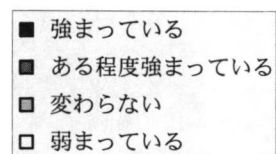 ■ 強まっている
■ ある程度強まっている
■ 変わらない
□ 弱まっている